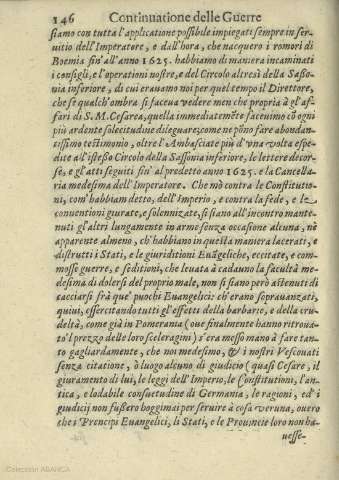 146 Continuatione delle Guerre
siamo con tutta l'applicatione possibile impiegati sempre in ser-
uitio dell'Imperatore, e dall'hora, che nacquero i romori di
Boemia fin'all'anno 1625. habbiamo di maniera incaminati
i consigli, e l'operationi nostre, e del Circolo altresì della Saßo-
nia inferiore, di cui erauamo noi per quel tempo il Direttore,
che se qualch'ombra si faceua vedere men che propria à gl'af-
fari di S.M.Cesarea, quella immediatemẽte facemmo cõ ogni
più ardente solecitudine dileguare; come ne põno fare abondan-
tissimo testimonio, oltre l'Ambasciate più d'vna volta espe-
dite all'istesso Circolo della Sassonia inferiore, le lettere decor-
se, e gl'atti seguiti fin'al predetto anno 1625. e la Cancella-
ria medesima dell'Imperatore. Che mò contra le Constitutio-
ni, com'habbiam detto, dell'Imperio, e contra la fede, e le
conuentioni giurate, e solennizate, si siano all'incontro mante-
nuti gl'altri lungamente in arme senza occasione alcuna, nè
apparente almeno, ch'habbiano in quella maniera lacerati, e
distrutti i Stati, e le giuriditioni Euãgeliche, eccitate, e com-
mosse guerre, e seditioni, che leuata à cadauno la facultà me-
desima di dolersi del proprio male, non si siano però astenuti di
cacciarsi frà que' puochi Euangelici ch'erano soprauanzati,
quiui, essercitando tutti gl'effetti della barbarie, e della cru-
deltà, come già in Pomerania (oue finalmente hanno ritroua-
to'l prezzo delle loro sceleragini) s'era messo mano à fare tan-
to gagliardamente, che noi medesimo, & i nostri Vescouati
senza citatione, ò luogo alcuno di giudicio (quasi Cesare, il
giuramento di lui, le leggi dell'Imperio, le Constitutioni, l'an-
tica, e lodabile consuetudine di Germania, le ragioni, ed i
giudicij non fußero hoggimai per seruire à cosa veruna, ouero
che i Prencipi Euangelici, li Stati, e le Prouincie loro non ha-
uesse-
Colección ABANCA